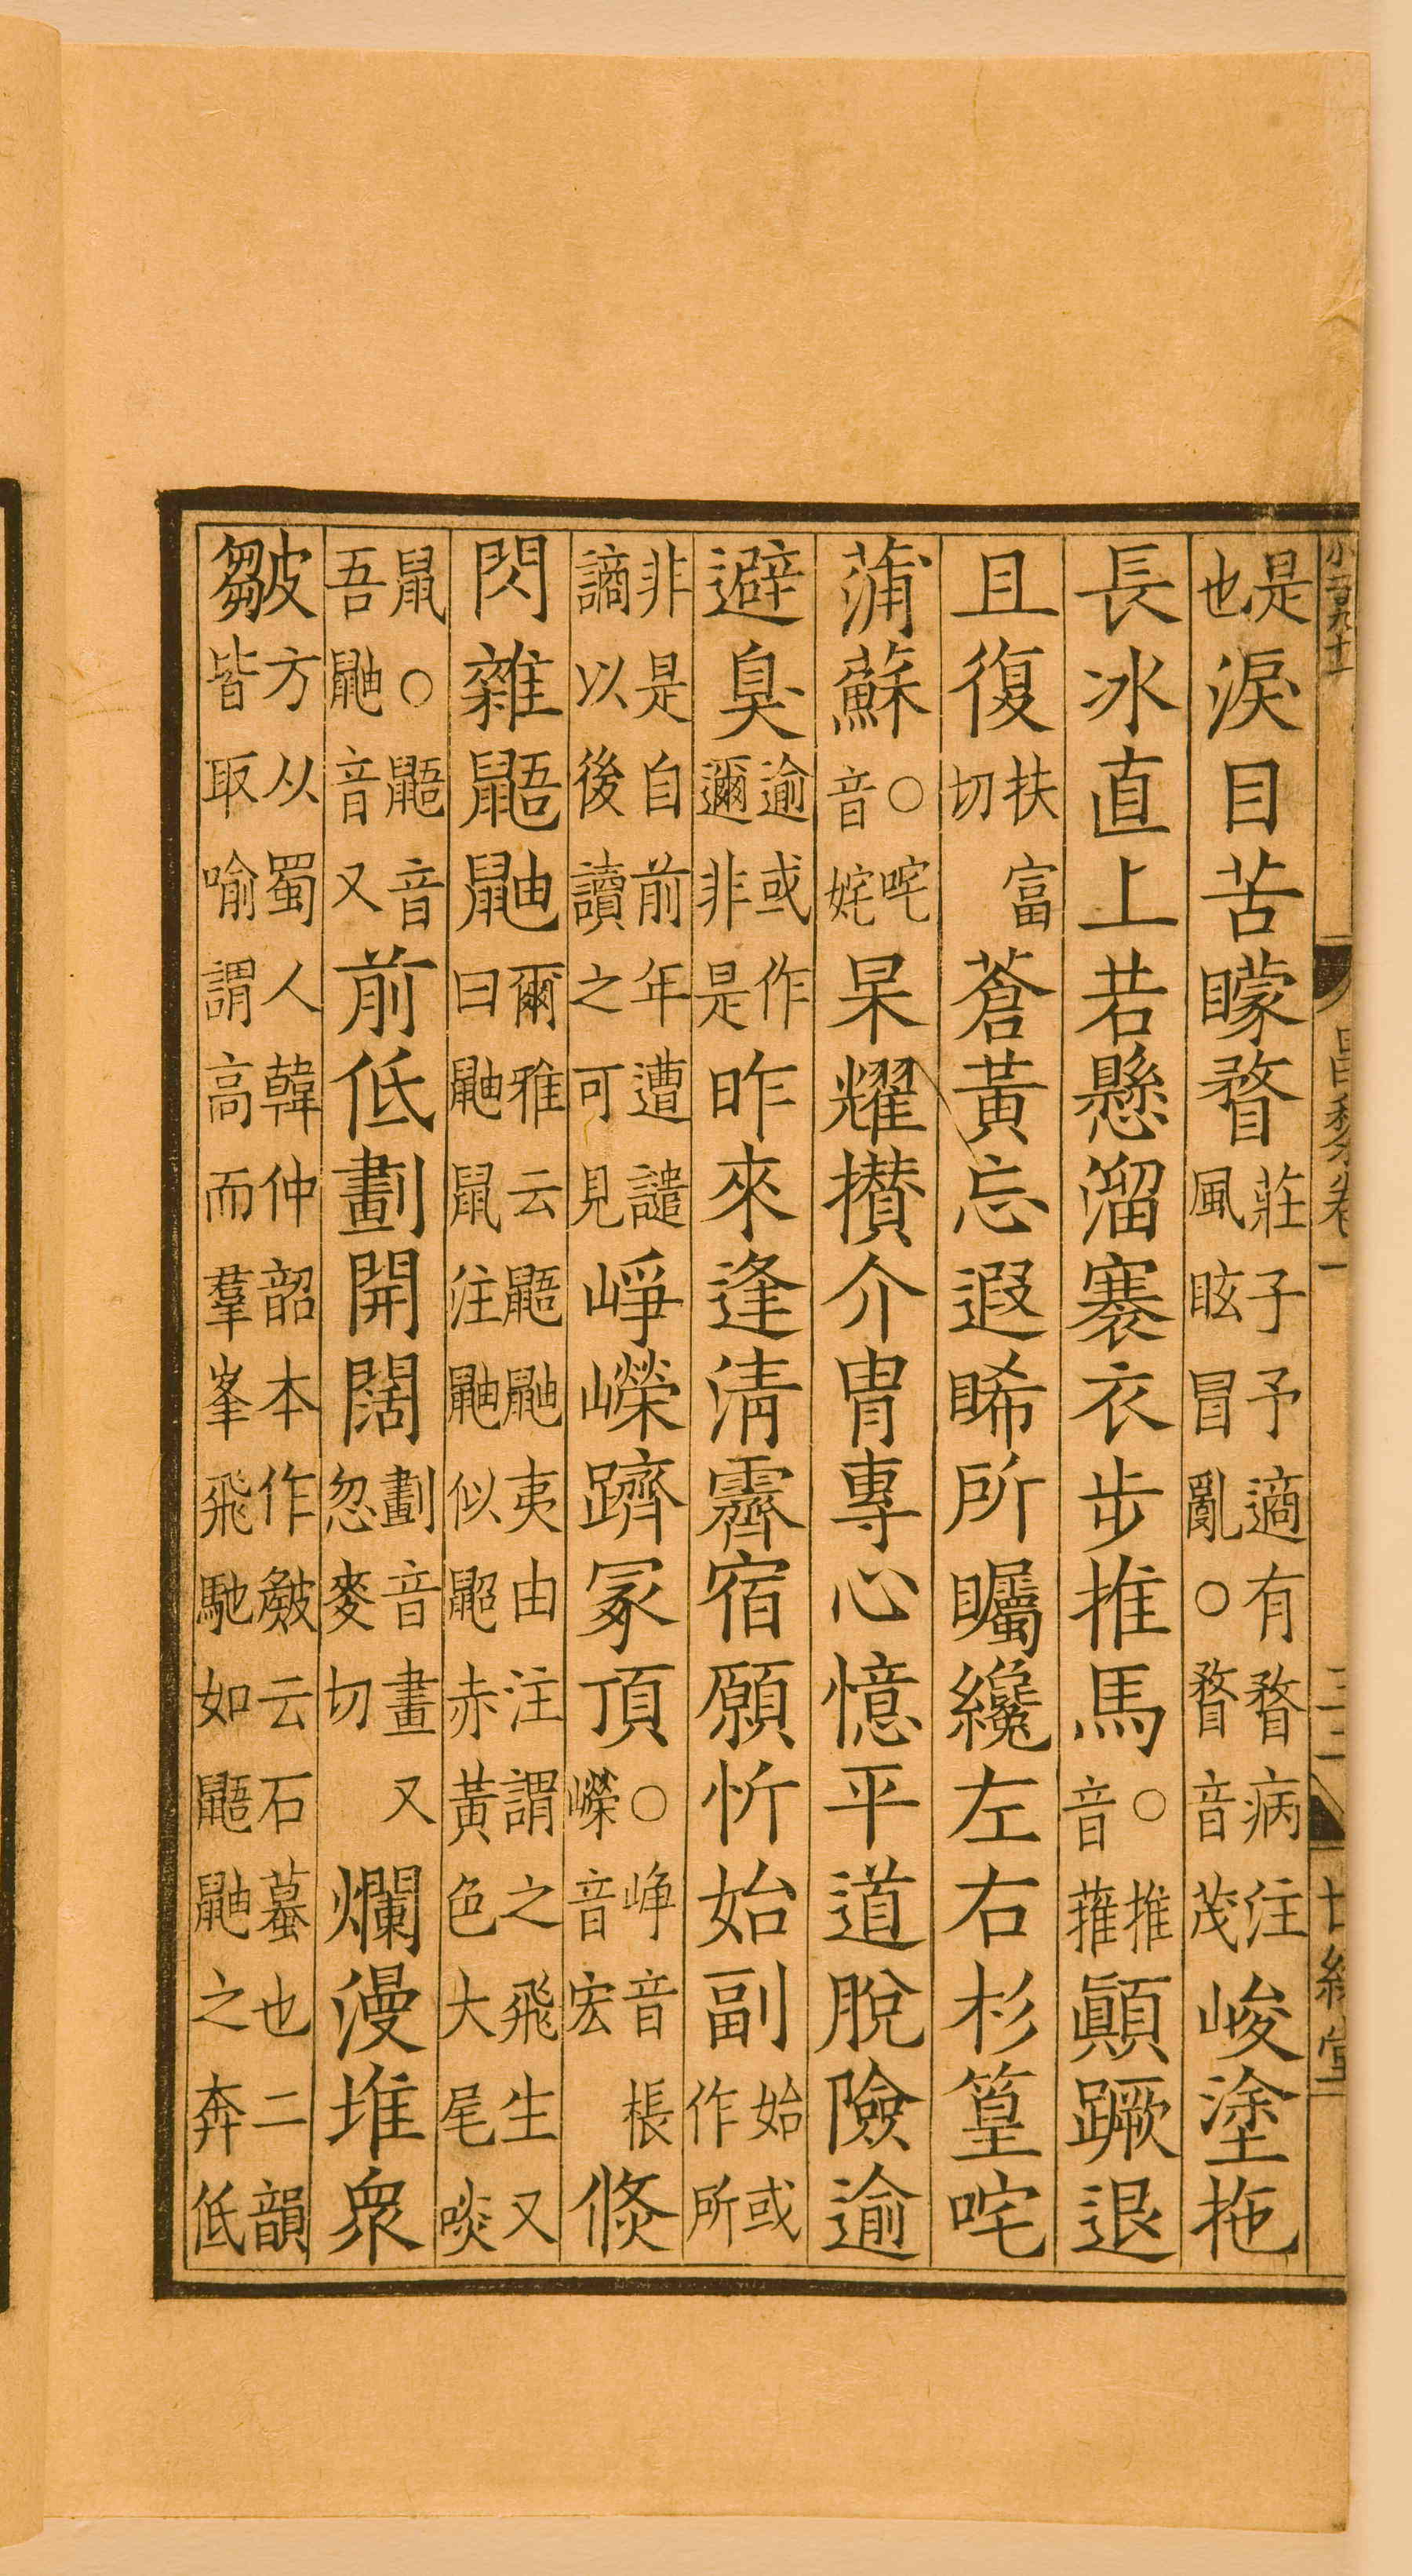 昌黎卷一
是也淚目苦矇瞀莊子予適有瞀病注風眩冒亂○瞀音茂峻塗拖
長冰直上若懸溜褰衣步推馬○推音蓷顛蹶退
且復扶富切蒼黃忘遐睎所矚纔左右杉篁咤
蒲蘇○咤音姹杲耀攢介胄專心憶平道脫險逾
避臭逾或作邇非是昨來逢清霽宿願忻始副始或作所
非是自前年遭譴謫以後讀之可見崢嶸躋冢頂○崢音棖嶸音宏倐
閃雜鼯鼬爾雅云鼯鼬夷由注謂之飛生又曰鼬鼠注鼬似鼦赤黃色大尾啖
鼠○鼯音吾鼬音又前低劃開闊劃音畫又忽麥切爛漫堆衆
皺方从蜀人韓仲韶本作云石蟇也二韻皆取喻謂高而羣峯飛馳如鼯鼬之奔低